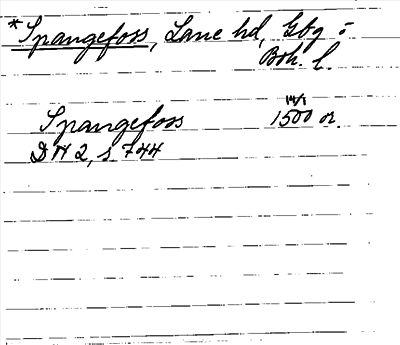 *Spångefoss, Lane hd, Gbg o
Boh. l.
Spangefoss 14/1 1500 or.
DN 2, s 744